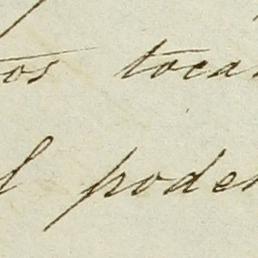 tos toca
l poder